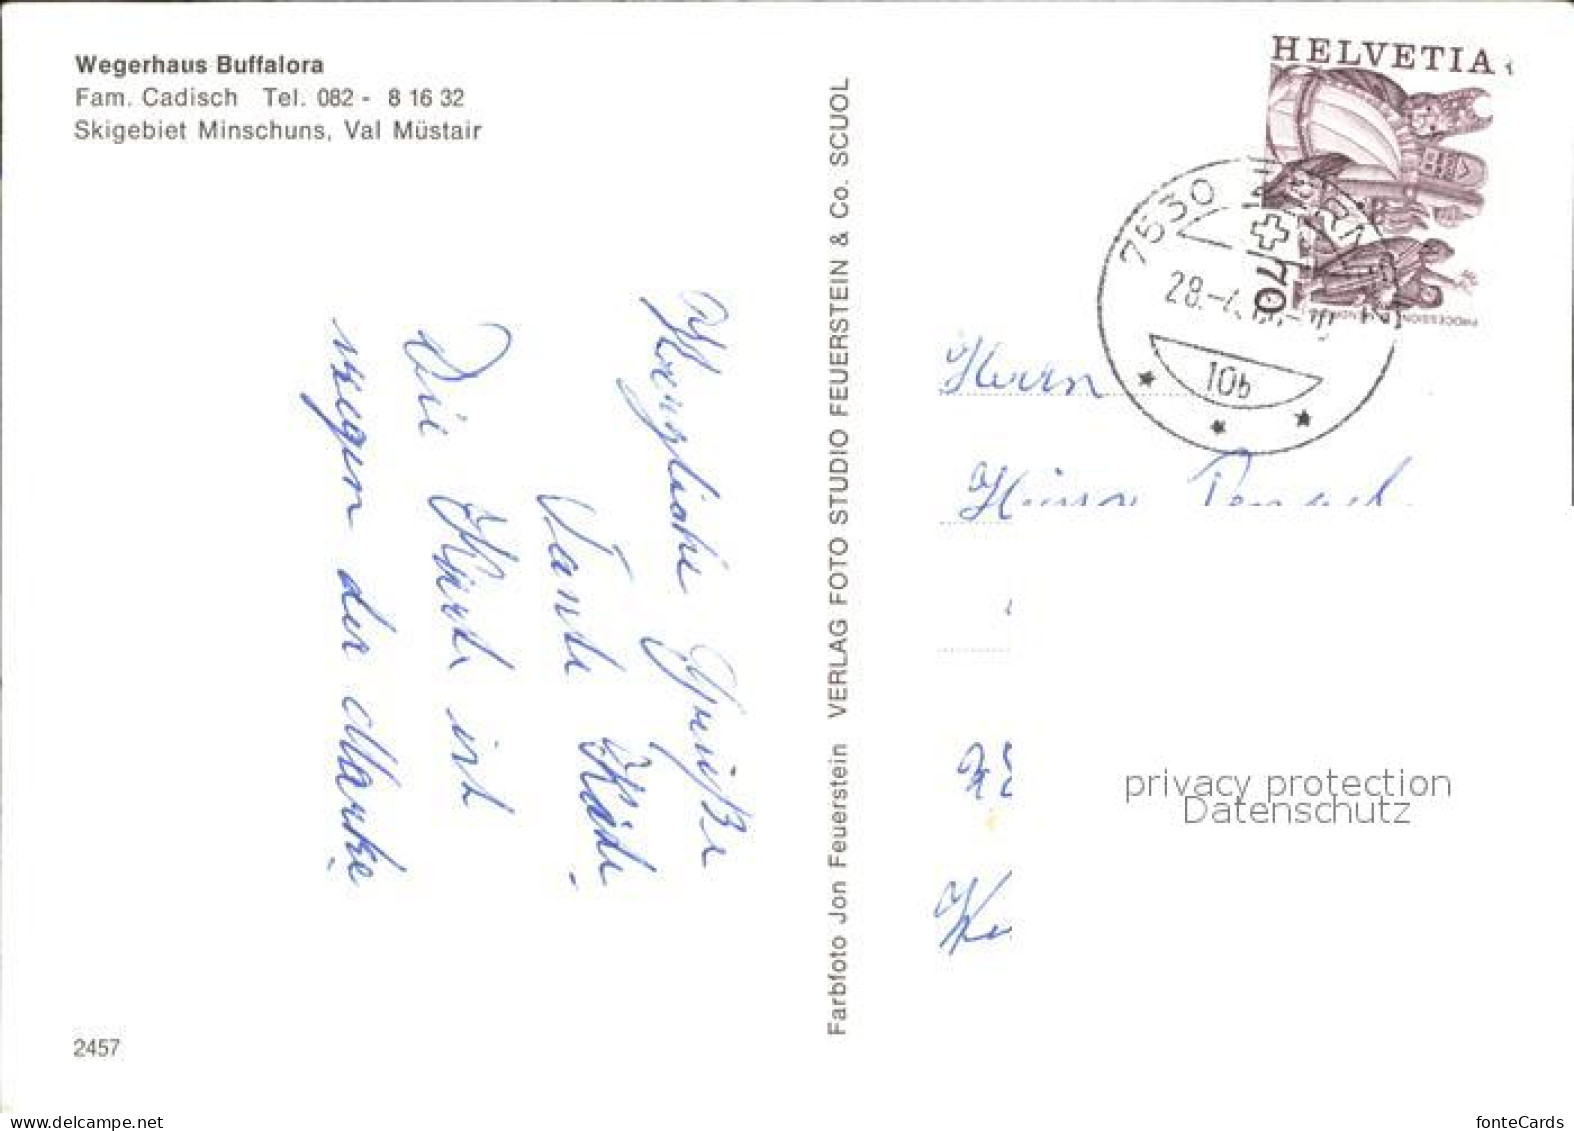 Wegerhaus Buffalora
Fam. Cadisch Tel. 082 - 8 16 32
Skigebiet Minschuns, Val Müstair
Herzliche Grüße
Tante Käde
Die Karte ist
wegen der Marke
2457
Farbfoto Jon Feuerstein VERLAG FOTO STUDIO FEUERSTEIN & Co. SCUOL
HELVETIA
70
PROCESSION
7530 ZERNEZ
28.-4.
10b
Herrn
privacy protection
Datenschutz
www.delcampe.net
fonteCards